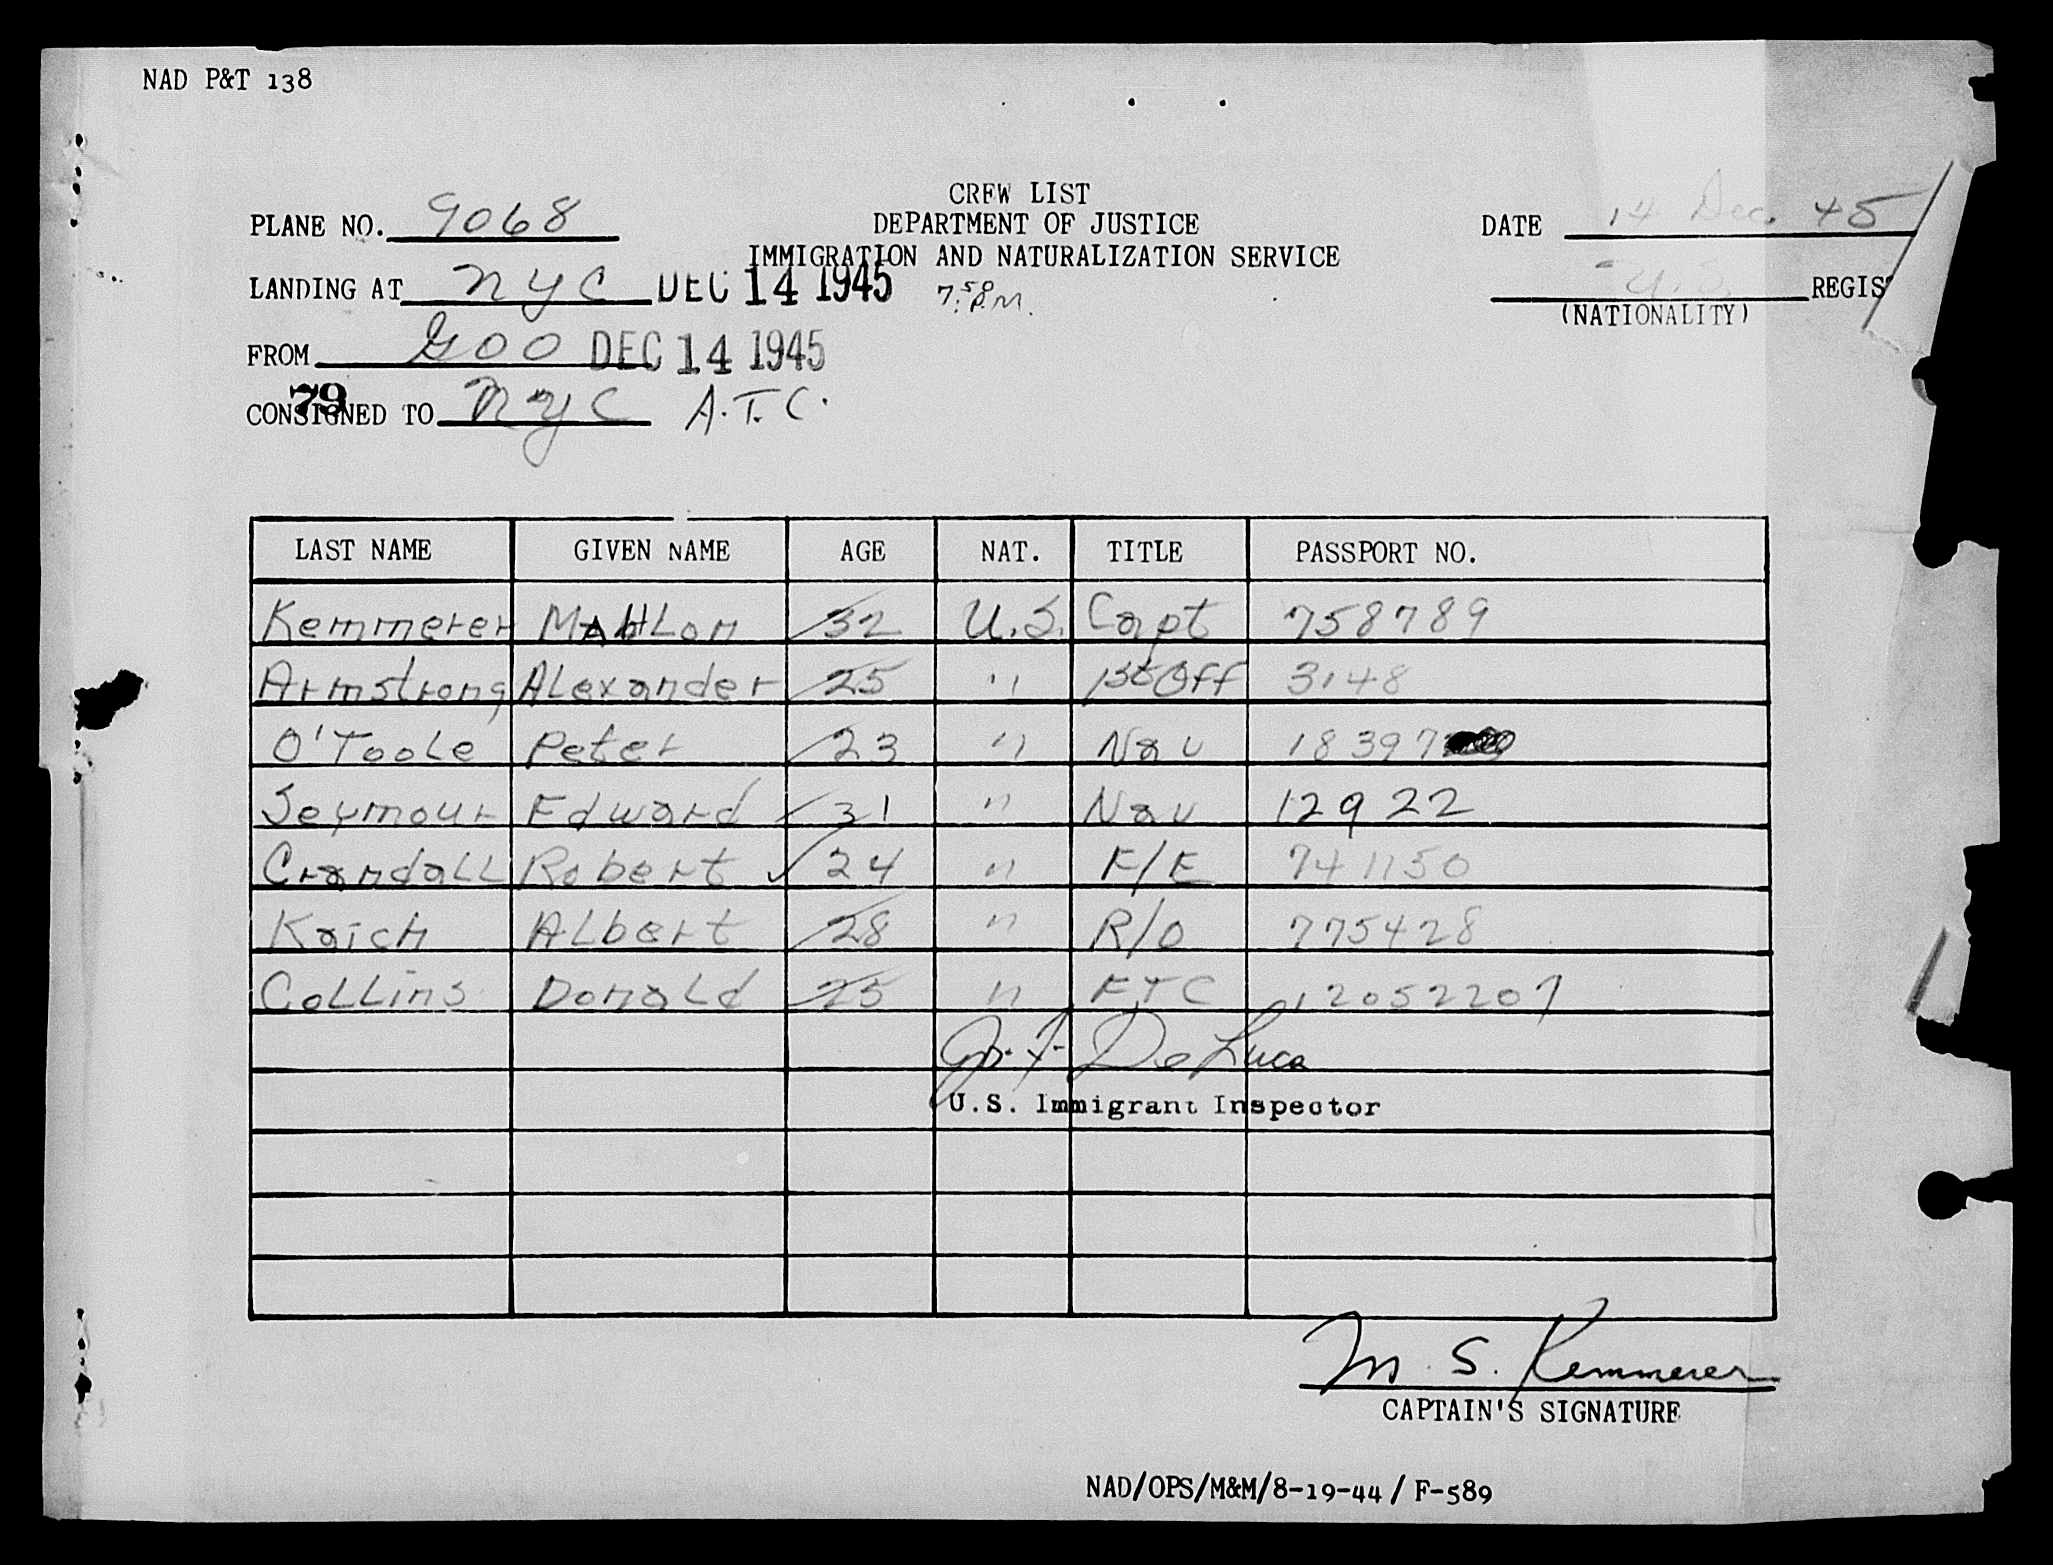 NAD P&T 138
CREW LIST
DEPARTMENT OF JUSTICE
IMMIGRATION AND NATURALIZATION SERVICE
PLANE NO. 9068
DATE 14 Dec. 45
LANDING AT NYC DEC 14 1945 7:50 P.M.
U.S. REGIS
(NATIONALITY)
FROM GOO DEC 14 1945
79
CONSIGNED TO NYC A.T.C.
LAST NAME GIVEN NAME AGE NAT. TITLE PASSPORT NO.
Kemmerer MAHLon 32 U.S. Capt 758789
Armstrong Alexander 25 " 1st Off 3148
O'Toole Peter 23 " Nav 18397
Seymour Edward 31 " Nav 12922
Crandall Robert 24 " F/E 741150
Kaich Albert 28 " R/O 775428
Collins Donald 25 " FTC 12052207
De Luca
U.S. Immigrant Inspector
M. S. Kemmerer
CAPTAIN'S SIGNATURE
NAD/OPS/M&M/8-19-44 / F-589